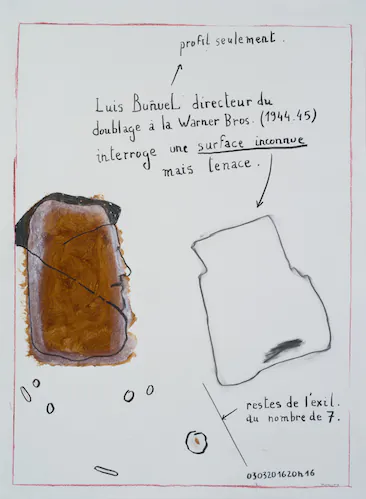 profil seulement.
Luis Buñuel directeur du
doublage à la Warner Bros. (1944.45)
interroge une surface inconnue
mais tenace.
restes de l'éxil.
au nombre de 7.
0303201620h16